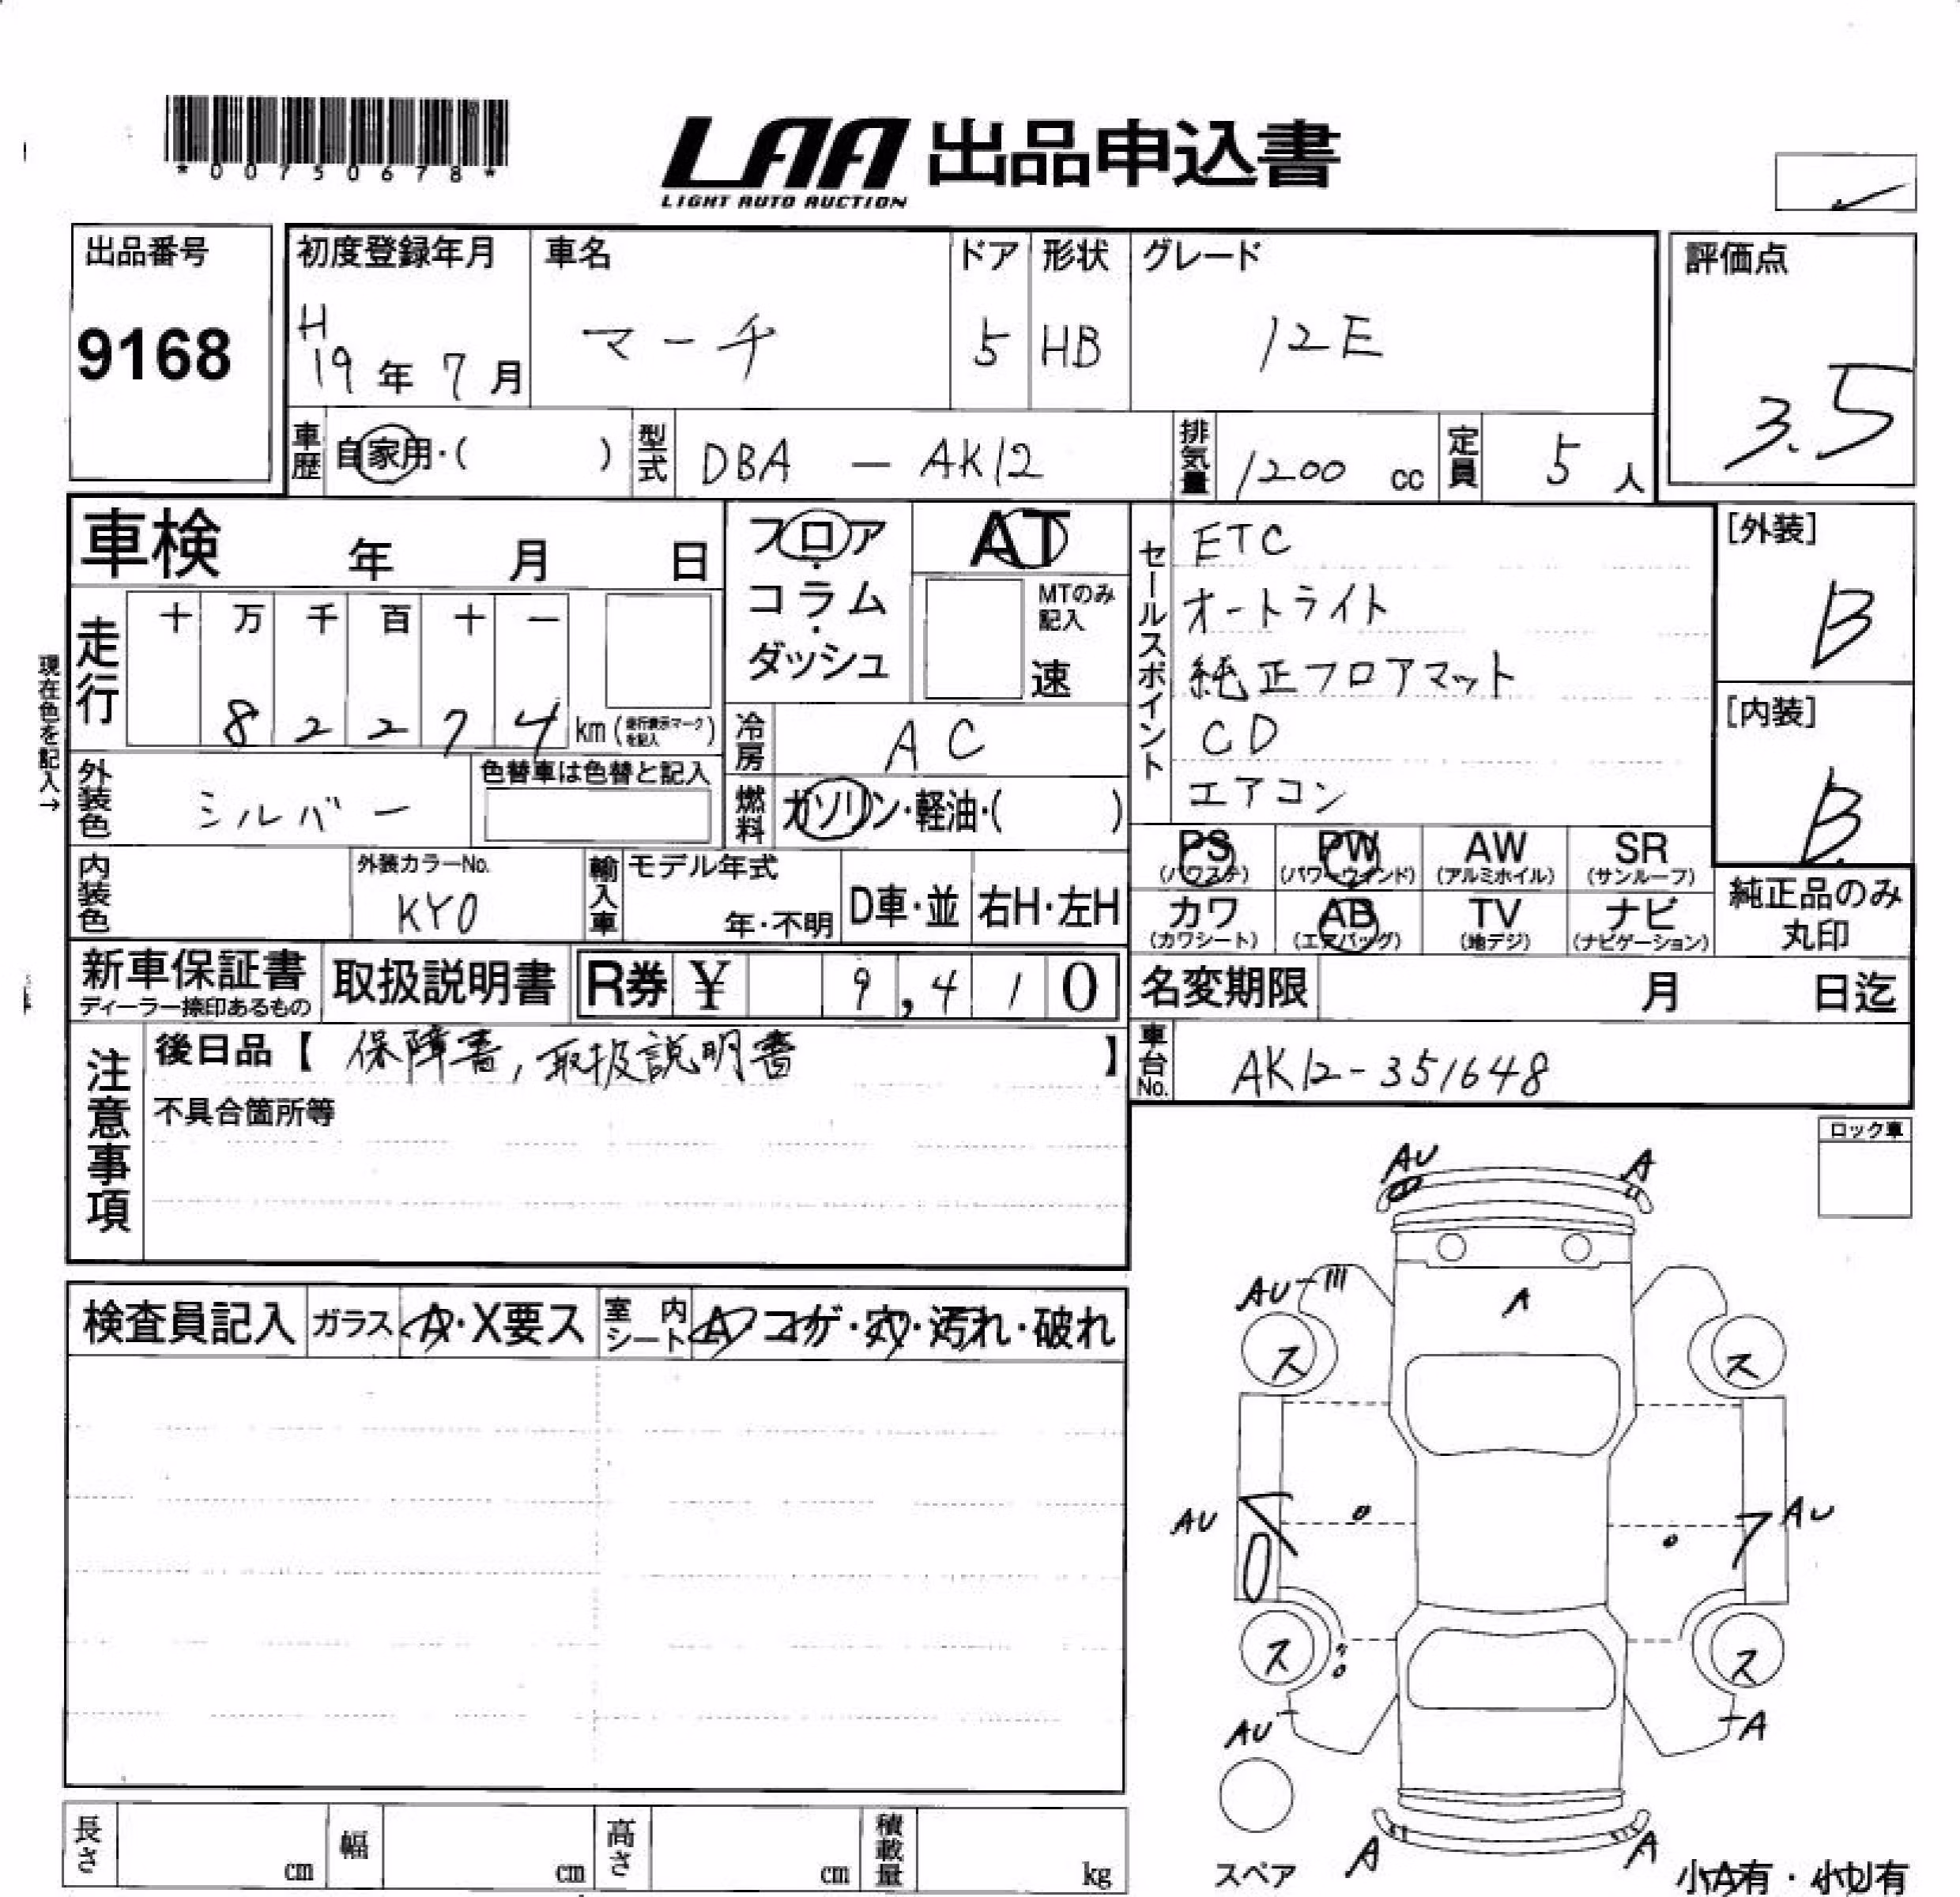 *00750678*
LAA 出品申込書
LIGHT AUTO AUCTION
出品番号
9168
初度登録年月
H
19年7月
車名
マーチ
ドア
5
形状
HB
グレード
12E
評価点
3.5
車歴
自家用・( )
型式
DBA - AK12
排気量
1200 cc
定員
5人
車検 年 月 日
フロア・コラム・ダッシュ
AT
MTのみ記入
速
セールスポイント
ETC
オートライト
純正フロアマット
CD
エアコン
[外装]
B
[内装]
B
現在色を記入→
走行
十 万 千 百 十 一
8 2 2 7 4 km (走行表示マークを記入)
冷房
AC
外装色
シルバー
色替車は色替と記入
燃料
ガソリン・軽油・( )
PS (パワステ)
PW (パワーウィンド)
AW (アルミホイル)
SR (サンルーフ)
カワ (カワシート)
AB (エアバッグ)
TV (地デジ)
ナビ (ナビゲーション)
純正品のみ丸印
内装色
外装カラーNo.
KY0
輸入車
モデル年式
年・不明
D車・並
右H・左H
新車保証書
ディーラー捺印あるもの
取扱説明書
R券 ¥ 9,410
名変期限 月 日迄
注意事項
後日品【 保障書, 取扱説明書 】
不具合箇所等
車台No.
AK12-351648
ロック車
検査員記入
ガラス
A・X要ス
室内シート
A コゲ・穴・汚れ・破れ
AU
A
AU
A
ス
ス
AU
AU
ス
ス
AU
A
スペア
A
A
小A有・小U有
長さ cm
幅 cm
高さ cm
積載量 kg